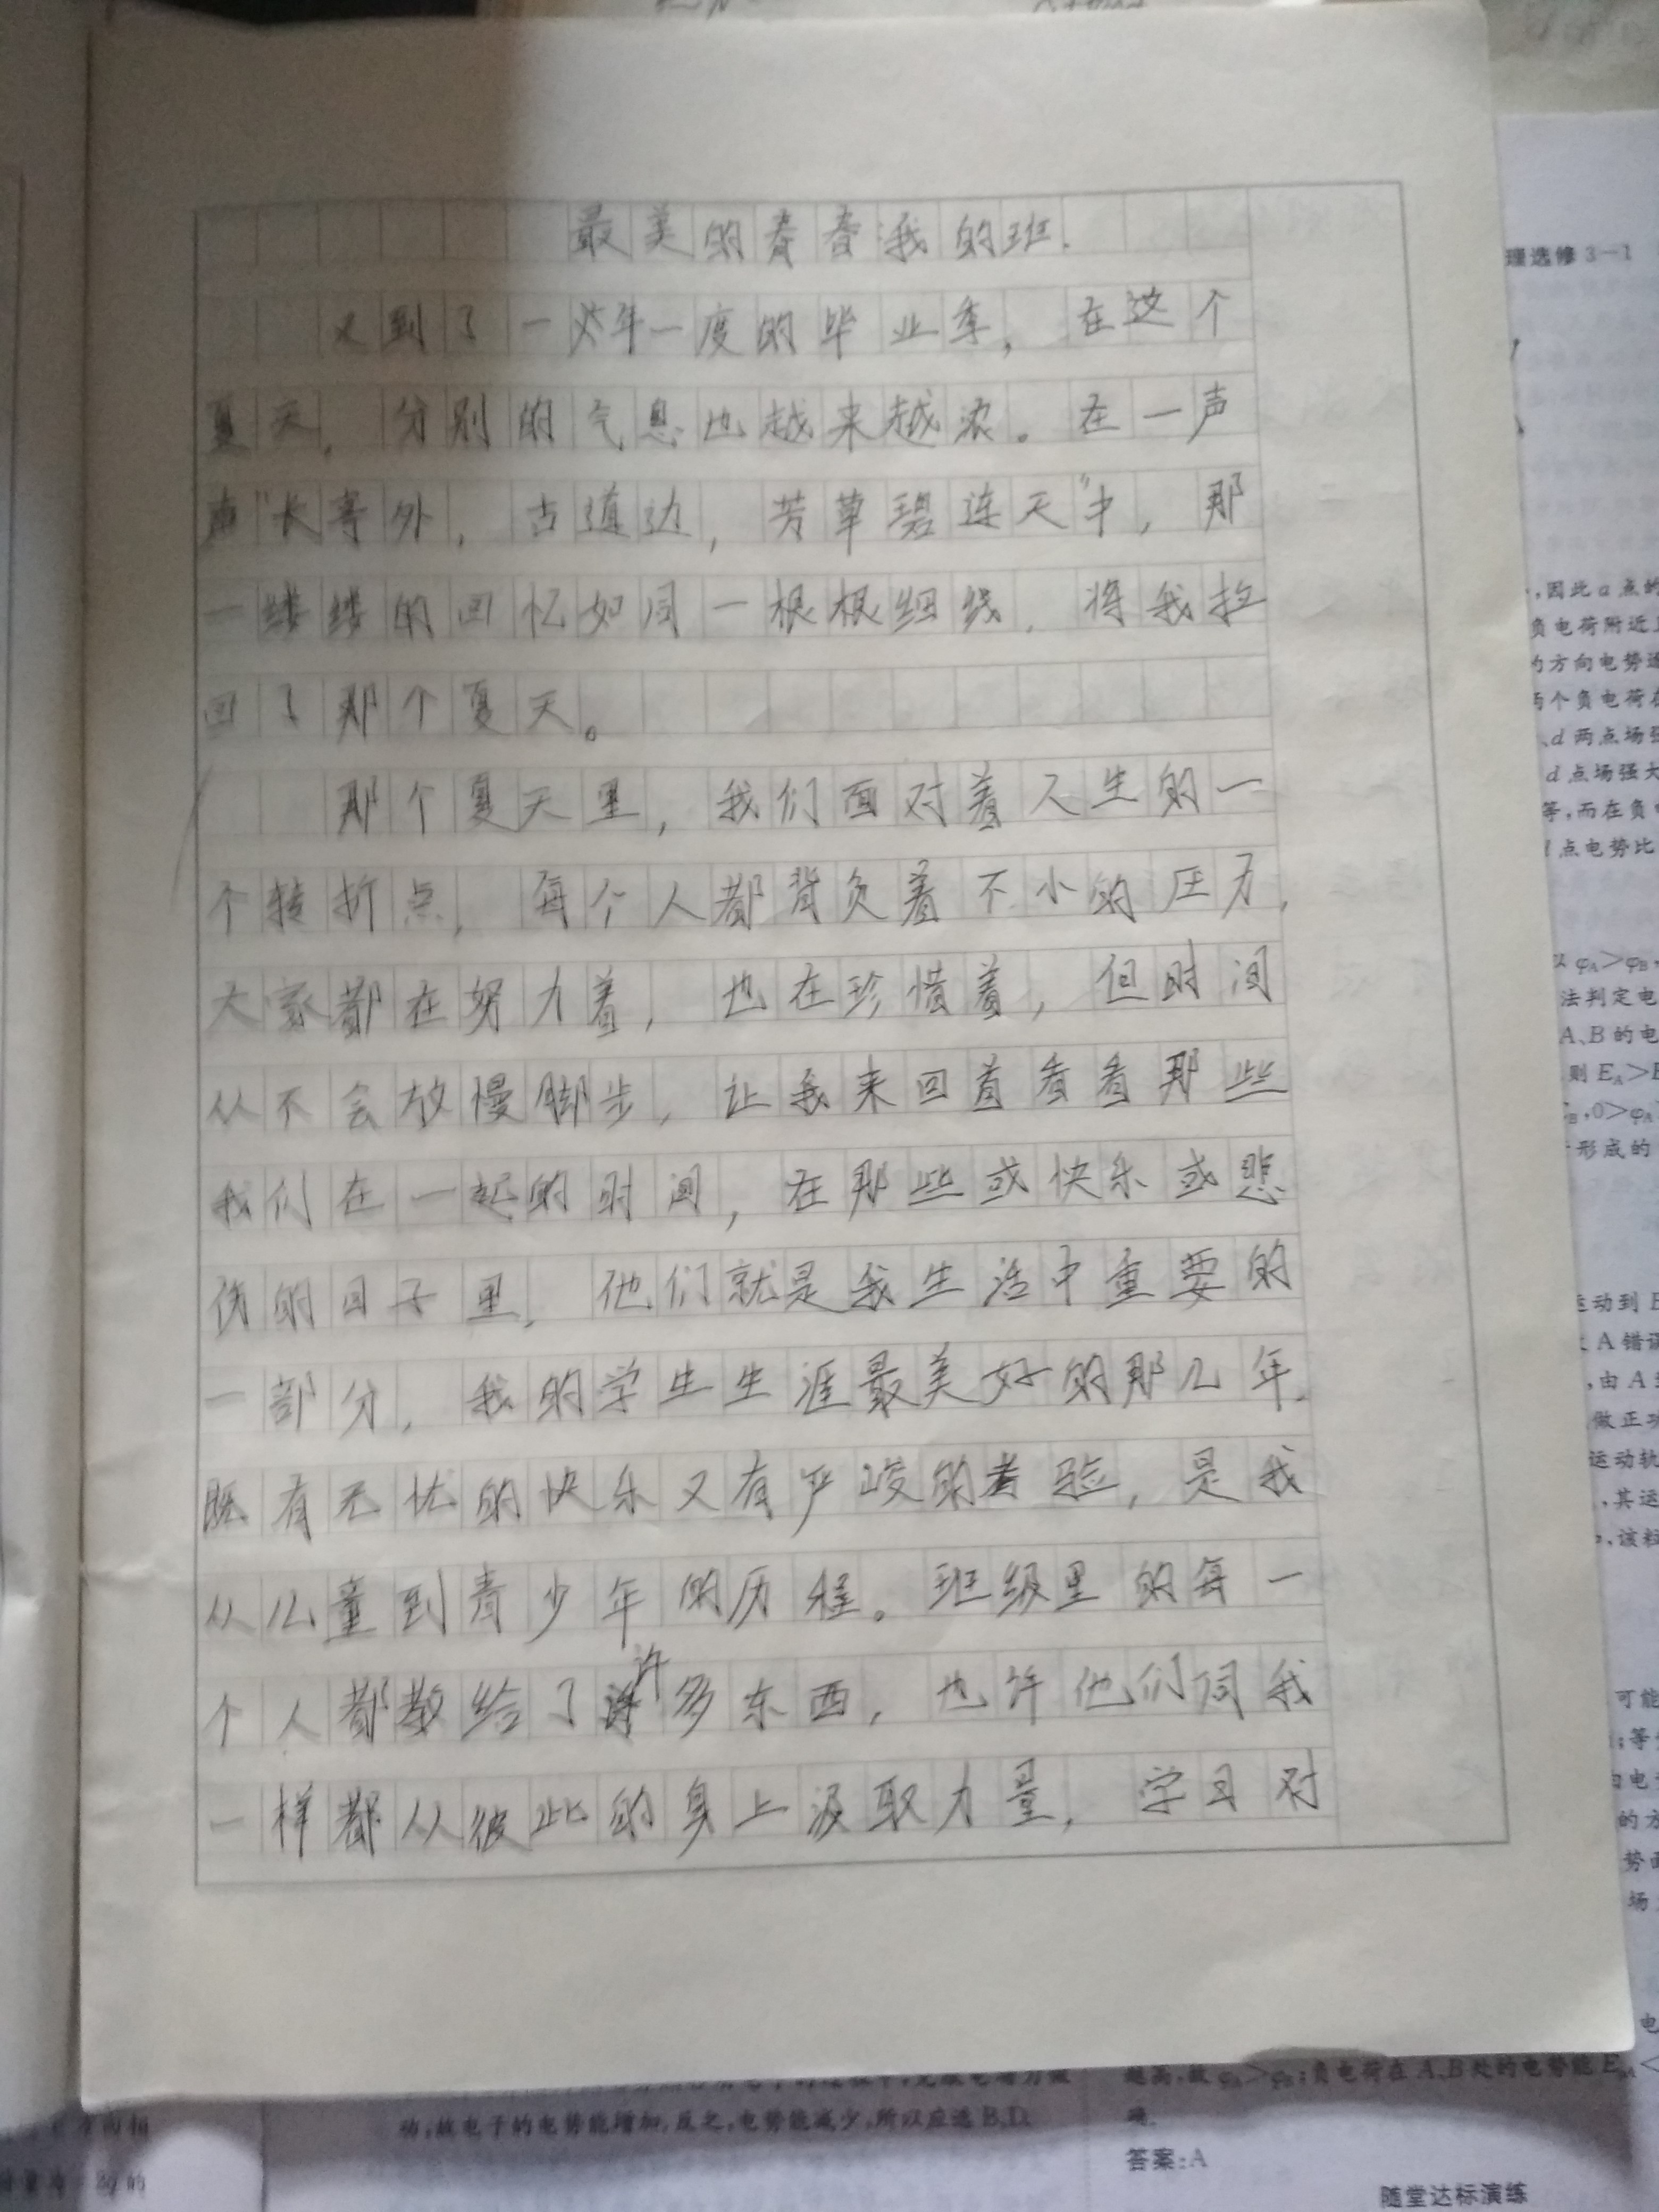 最美的青春我的班.
又到了一年一度的毕业季，在这个
夏天，分别的气息也越来越浓。在一声
声"长亭外，古道边，芳草碧连天"中，那
一缕缕的回忆如同一根根细线，将我拉
回了那个夏天。
那个夏天里，我们面对着人生的一
个转折点，每个人都背负着不小的压力，
大家都在努力着，也在珍惜着，但时间
从不会放慢脚步，让我来回首看看那些
我们在一起的时间，在那些或快乐或悲
伤的日子里，他们就是我生活中重要的
一部分，我的学生生涯最美好的那几年，
既有无忧的快乐又有严峻的考验，是我
从儿童到青少年的历程。班级里的每一
个人都教给了许多东西，也许他们同我
一样都从彼此的身上汲取力量，学习对
理选修3-1
,因此a点的
负电荷附近
的方向电势逐
两个负电荷在
、d两点场强
d点场强大
等,而在负电
点电势比
φA>φB,
法判定电
A、B的电
则EA>
,0>φA
形成的
运动到B
A错误
,由A
做正功
运动轨
,其运
,该粒
可能
;等
由电
的方
势面
场
动,故电子的电势能增加,反之,电势能减少,所以应选B、D.
越高,故φA>φB;负电荷在A、B处的电势能EpA<
确.
答案:A
随堂达标演练